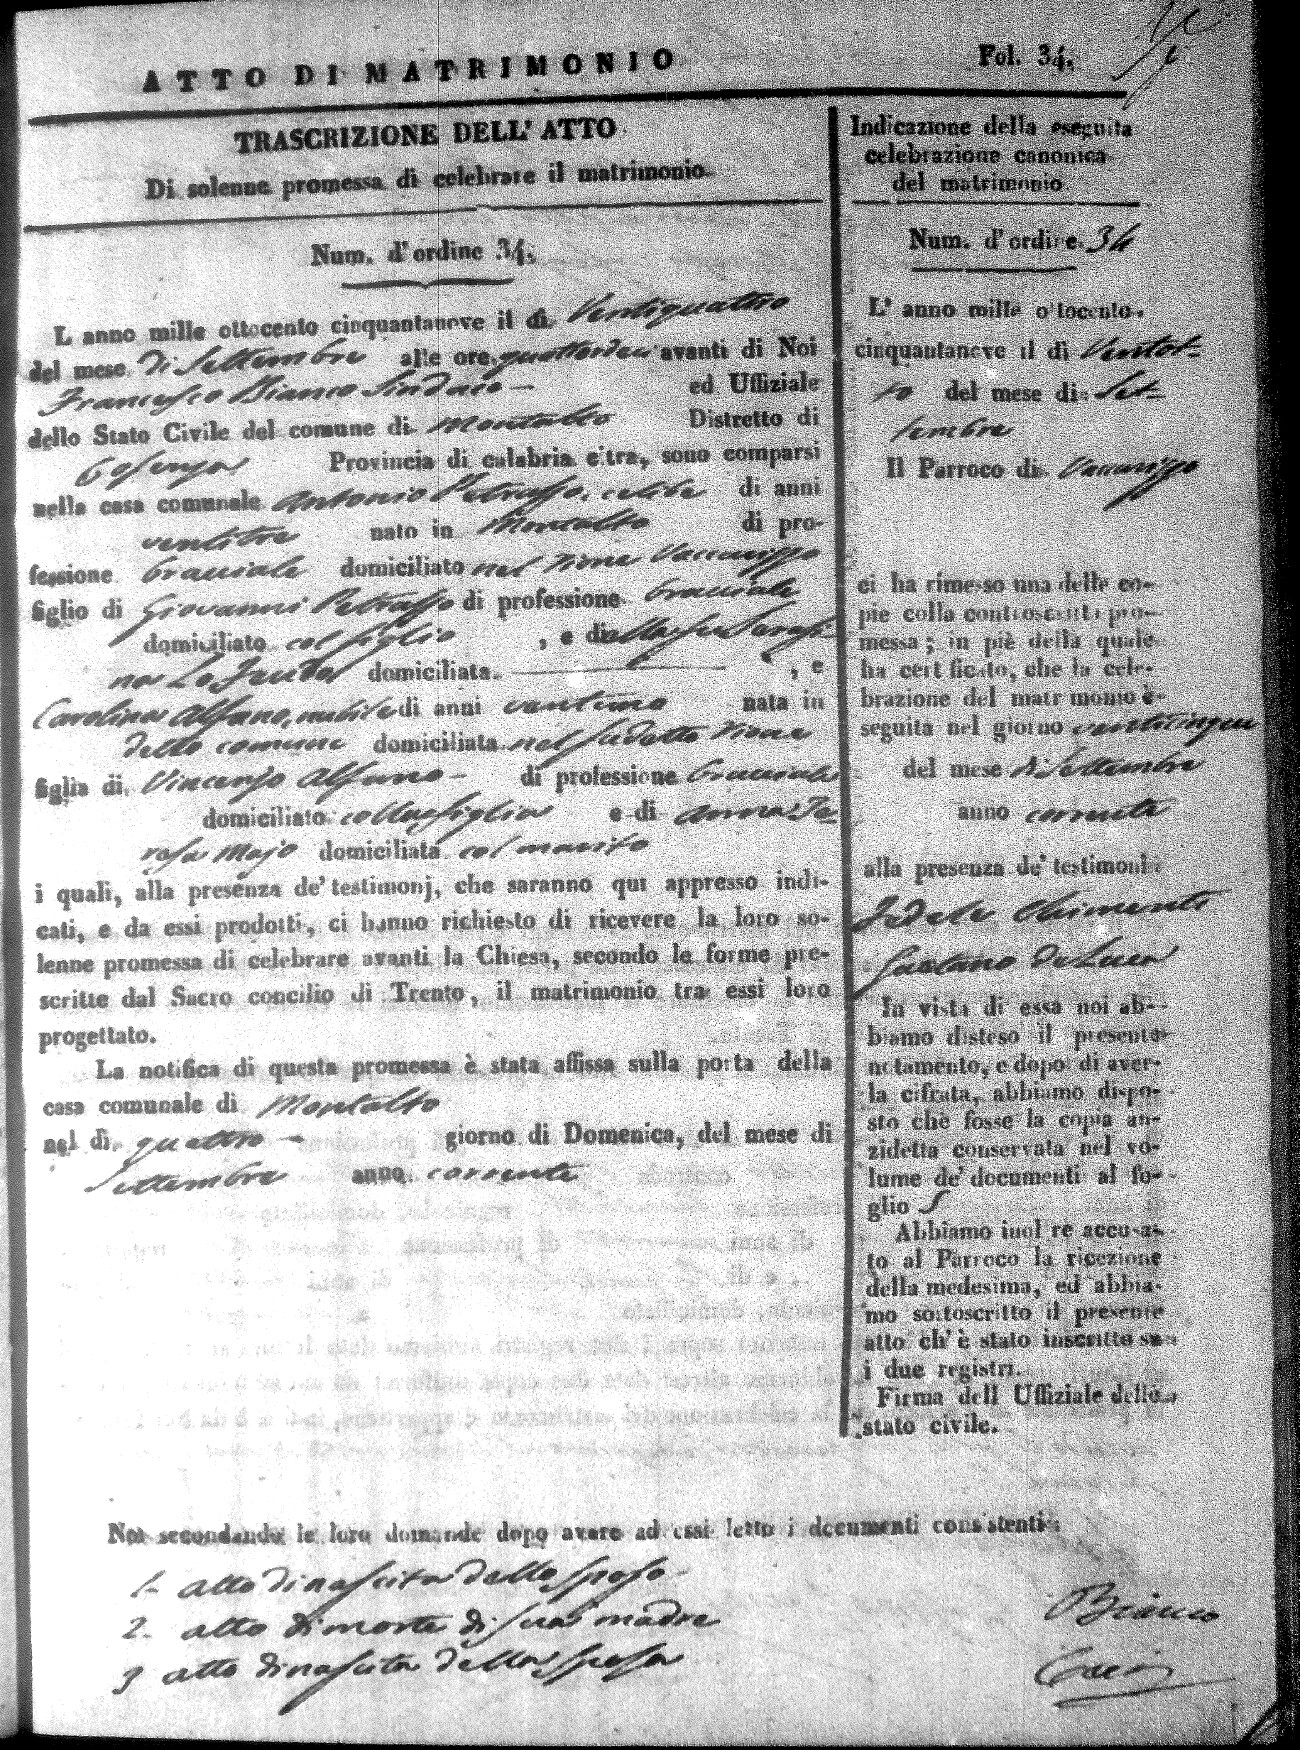 ATTO DI MATRIMONIO
Fol. 34.
TRASCRIZIONE DELL' ATTO
Di solenne promessa di celebrare il matrimonio
Num. d'ordine 34.
L anno mille ottocento cinquantanove il dì Ventiquattro
del mese di Settembre alle ore quattordeci avanti di Noi
Francesco Bianco Sindaco — ed Uffiziale
dello Stato Civile del comune di Montalto Distretto di
Cosenza Provincia di calabria citra, sono comparsi
nella casa comunale Antonio Petrasso, celibe di anni
ventitre nato in Montalto di pro-
fessione bracciale domiciliato nel rione Vaccarizzo
figlio di Giovanni Petrasso di professione bracciale
domiciliato col figlio , e di della fu Serafi-
na Lo domiciliata — , e
Carolina Alfano, nubile di anni ventuno nata in
detto comune domiciliata nel sudetto rione
figlia di Vincenzo Alfano — di professione bracciale
domiciliato colla figlia e di Anna Te-
resa Majo domiciliata col marito
i quali, alla presenza de' testimonj, che saranno qui appresso indi-
cati, e da essi prodotti, ci hanno richiesto di ricevere la loro so-
lenne promessa di celebrare avanti la Chiesa, secondo le forme pre-
scritte dal Sacro concilio di Trento, il matrimonio tra essi loro
progettato.
La notifica di questa promessa è stata affissa sulla porta della
casa comunale di Montalto
nel dì quattro — giorno di Domenica, del mese di
Settembre anno corrente
Noi secondando le loro domande dopo avere ad essi letto i documenti consistenti:
1- atto di nascita dello sposo-
2- atto di morte di sua madre
3 atto di nascita della sposa
Indicazione della eseguita
celebrazione canonica
del matrimonio
Num. d'ordine 34
L' anno mille ottocento
cinquantanove il dì Ventot-
to del mese di Set-
tembre
Il Parroco di Vaccarizzo
ci ha rimesso una delle co-
pie colla controscritta pro-
messa; in piè della quale
ha certificato, che la cele-
brazione del matrimonio è
seguita nel giorno venticinque
del mese di Settembre
anno corrente
alla presenza de' testimoni
Fedele Chimenti
Gaetano de Luca
In vista di essa noi ab-
biamo disteso il presente
notamento, e dopo di aver-
la cifrata, abbiamo dispo-
sto che fosse la copia an-
zidetta conservata nel vo-
lume de' documenti al fo-
glio 5
Abbiamo inoltre accusa-
to al Parroco la ricezione
della medesima, ed abbia-
mo sottoscritto il presente
atto ch' è stato inscritto su
i due registri.
Firma dell Uffiziale dello
stato civile.
Bianco